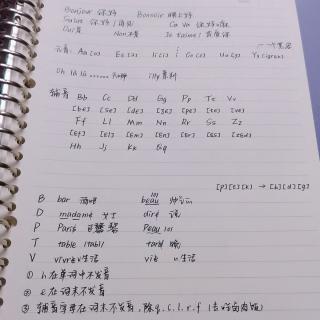 Bonjour 你好 Bonsoir 晚上好
Salut 你好/再见 Ca va 你好吗
Oui是 Non不是 Je t'aime!
元音: Aa [a] Ee [ə] Ii [i] Oo [o] Uu [y] Yy [igrek]
Oh là là
辅音 Bb Cc Dd Gg Pp Tt Vv
[be] [se] [de] [ʒe] [pe] [te] [ve]
Ff Ll Mm Nn Rr Ss Zz
[ɛf] [ɛl] [ɛm] [ɛn] [ɛr] [ɛs] [zɛd]
Hh Jj Kk Qq
[p][t][k] → [b][d][g]
B bar 酒吧 beau
D madame 女士 dire 说
P Paris 巴黎 Peau
T table /tabl/ tard 晚
V vivre 生活 vie 生活
① h在单词中不发音
② e在词末不发音
③ 辅音字母在词末不发音, 除q.c.l.r.f